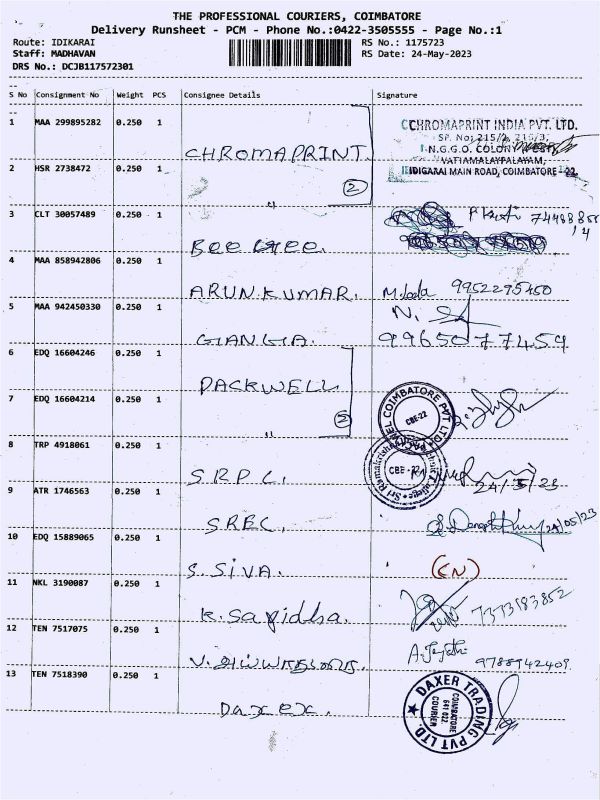 THE PROFESSIONAL COURIERS, COIMBATORE
Delivery Runsheet - PCM - Phone No.:0422-3505555 - Page No.:1
Route: IDIKARAI
RS No.: 1175723
Staff: MADHAVAN
RS Date: 24-May-2023
DRS No.: DCJB117572301
S No Consignment No Weight PCS Consignee Details Signature
1 MAA 299895282 0.250 1
CHROMAPRINT INDIA PVT. LTD.
SF. No: 215/2, 216/3,
N.G.G.O. COLONY
VATIAMALAYPALAYAM,
IDIGARAI MAIN ROAD, COIMBATORE - 22.
CHROMAPRINT.
2 HSR 2738472 0.250 1
2
3 CLT 30057489 0.250 1
Bee Gee.
4 MAA 858942806 0.250 1
ARUN.KUMAR. 9952275450
5 MAA 942450330 0.250 1
N.
GANGA. 9965077459
6 EDQ 16604246 0.250 1
PACKWELL
7 EDQ 16604214 0.250 1
COIMBATORE PVT LTD
CBE-22
8 TRP 4918061 0.250 1
CBE - 22
Sri Ramakrishna
College
S.R.P.C. 24/5/23
9 ATR 1746563 0.250 1
SREC. 24/05/23
10 EDQ 15889065 0.250 1
S. SIVA. (CN)
11 NKL 3190087 0.250 1
K. 7373183852
12 TEN 7517075 0.250 1
V. 9788942409
13 TEN 7518390 0.250 1
DAXER TRADING PVT LTD.
COIMBATORE
641 022.
COURIER
Daxex.